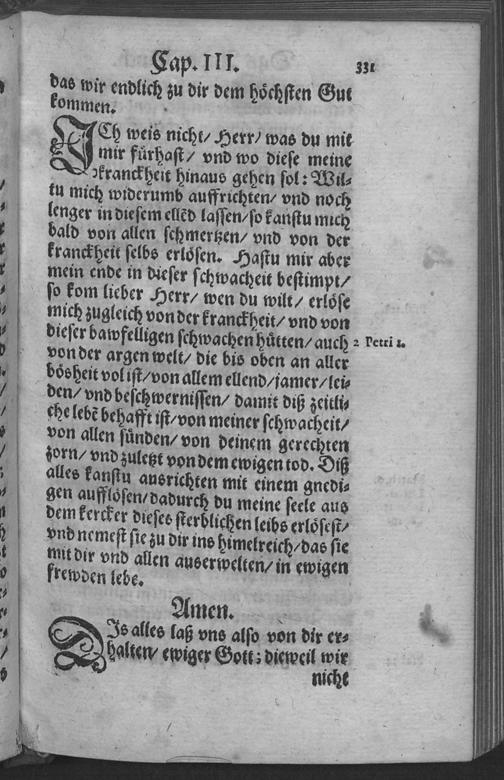 Cap. III.
331
das wir endlich zu dir dem höchsten Gut
kommen.
ICh weis nicht/ Herr/ was du mit
mir fürhast/ vnd wo diese meine
kranckheit hinaus gehen sol: Wil-
tu mich widerumb auffrichten/ vnd noch
lenger in diesem ellēd lassen/ so kanstu mich
bald von allen schmertzen/ vnd von der
kranckheit selbs erlösen. Hastu mir aber
mein ende in dieser schwacheit bestimpt/
so kom lieber Herr/ wen du wilt/ erlöse
mich zugleich von der kranckheit/ vnd von
dieser bawfelligen schwachen hütten/ auch
2 Petri 1.
von der argen welt/ die bis oben an aller
bösheit vol ist/ von allem ellend/ jamer/ lei-
den/ vnd beschwernissen/ damit diß zeitli-
che lebē behafft ist/ von meiner schwacheit/
von allen sünden/ von deinem gerechten
zorn/ vnd zuletzt von dem ewigen tod. Diß
alles kanstu ausrichten mit einem gnedi-
gen aufflösen/ dadurch du meine seele aus
dem kercker dieses sterblichen leibs erlösest/
vnd nemest sie zu dir ins himelreich/ das sie
mit dir vnd allen auserwelten/ in ewigen
frewden lebe.
Amen.
DIs alles laß vns also von dir er-
halten/ ewiger Gott: dieweil wir
nicht